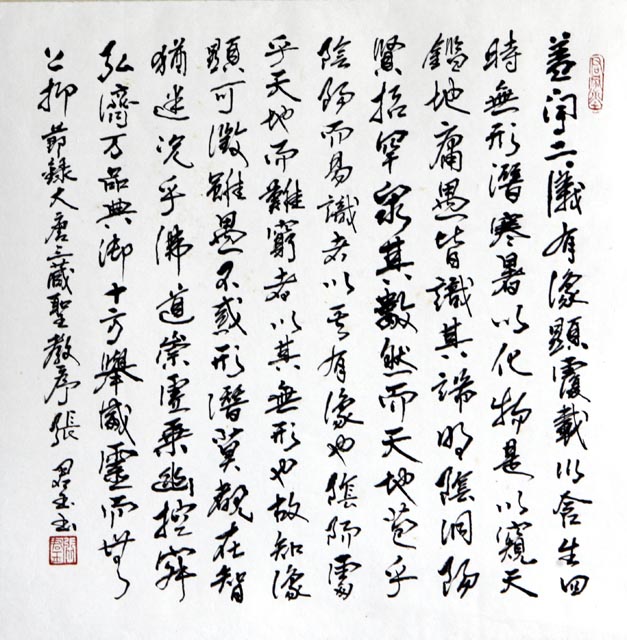 蓋闻二儀有像顯覆載以含生四
時無形潛寒暑以化物是以窺天
鑑地庸愚皆識其端明陰洞陽
賢哲罕窮其數然而天地苞乎
陰陽而易識者以其有像也陰陽處
乎天地而難窮者以其無形也故知像
顯可徵雖愚不惑形潛莫覩在智
猶迷況乎佛道崇虛乘幽控寂
弘濟万品典御十方舉威靈而無
上抑 節錄大唐三藏聖教序 張君玉书